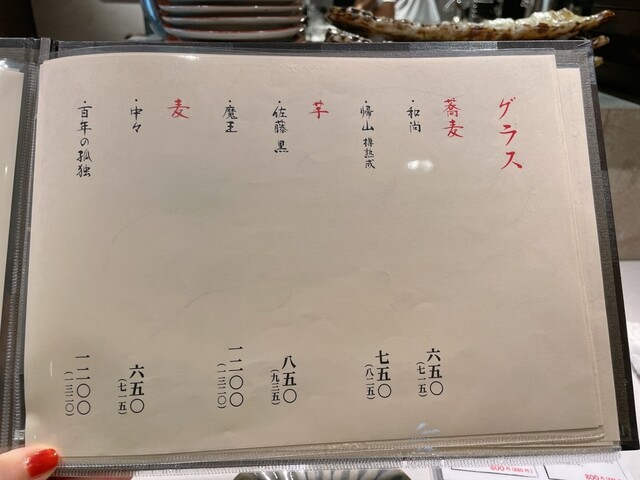 グラス
蕎麦
・和尚 六五〇(七一五)
・帰山 樽熟成 七五〇(八二五)
芋
・佐藤 黒 八五〇(九三五)
・魔王 一二〇〇(一三二〇)
麦
・中々 六五〇(七一五)
・百年の孤独 一二〇〇(一三二〇)